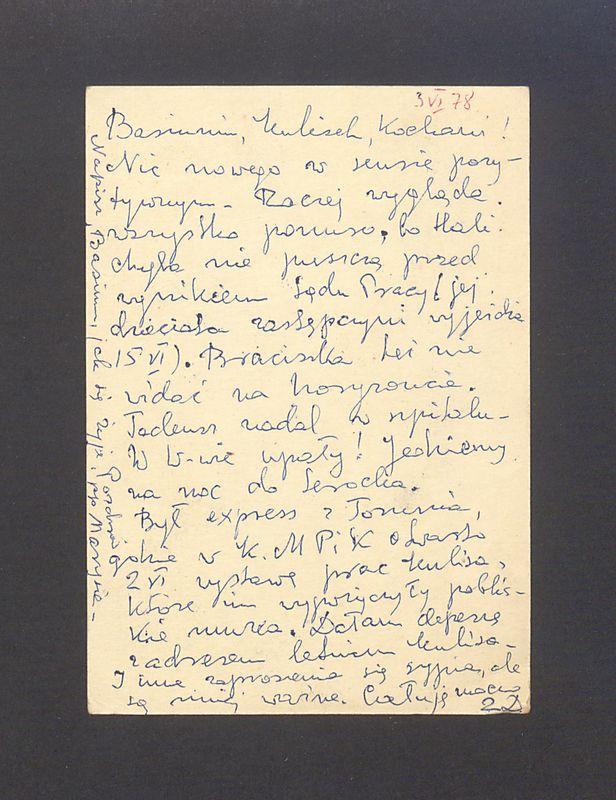 3 VI 78
Basiunin, Kulisch, Kochani!
Nic nowego w sensie pozy-
tywnym - Raczej wygląda
wszystko ponuro, bo Hali
chyba nie puszczą przed
wynikiem Sądu Pracy (jej
dzieciaki zastępczyni wyjeżdża
15 VI). Braciszka też nie
widać na horyzoncie.
Tadeusz nadal w szpitalu -
W W-wie upały! Jedziemy
na noc do Serocka.
Był express z Torunia,
gdzie w K.M.PiK otwarto
2 VI wystawę prac Kulisa,
które im wypożyczyły pobliskie
kie muzea. Dałam depeszę
z adresem letnim Kulisa -
I inne zaproszenia się sypią, ale
są mniej ważne. Całuję mocno
2D
Napisz, Basiunin, jak się żyje. Pozdrów
pp Marysię -